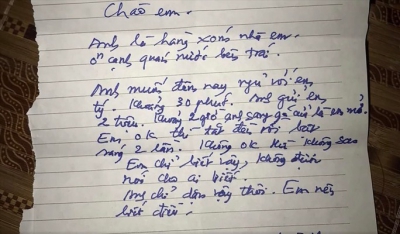 Chào em.
Anh là hàng xóm nhà em.
Ở cạnh quán nước bên trái.
Anh muốn đêm nay ngủ với em
tý. Khoảng 30 phút. Anh gửi em
2 triệu. Khoảng 2 giờ anh sang gõ cửa là em mở.
Em ok thì tắt đèn rồi bật
sáng 2 lần. Không ok thì không sao
Em chỉ biết vậy, không được
nói cho ai biết.
Anh chỉ dặn vậy thôi. Em nên
biết điều.